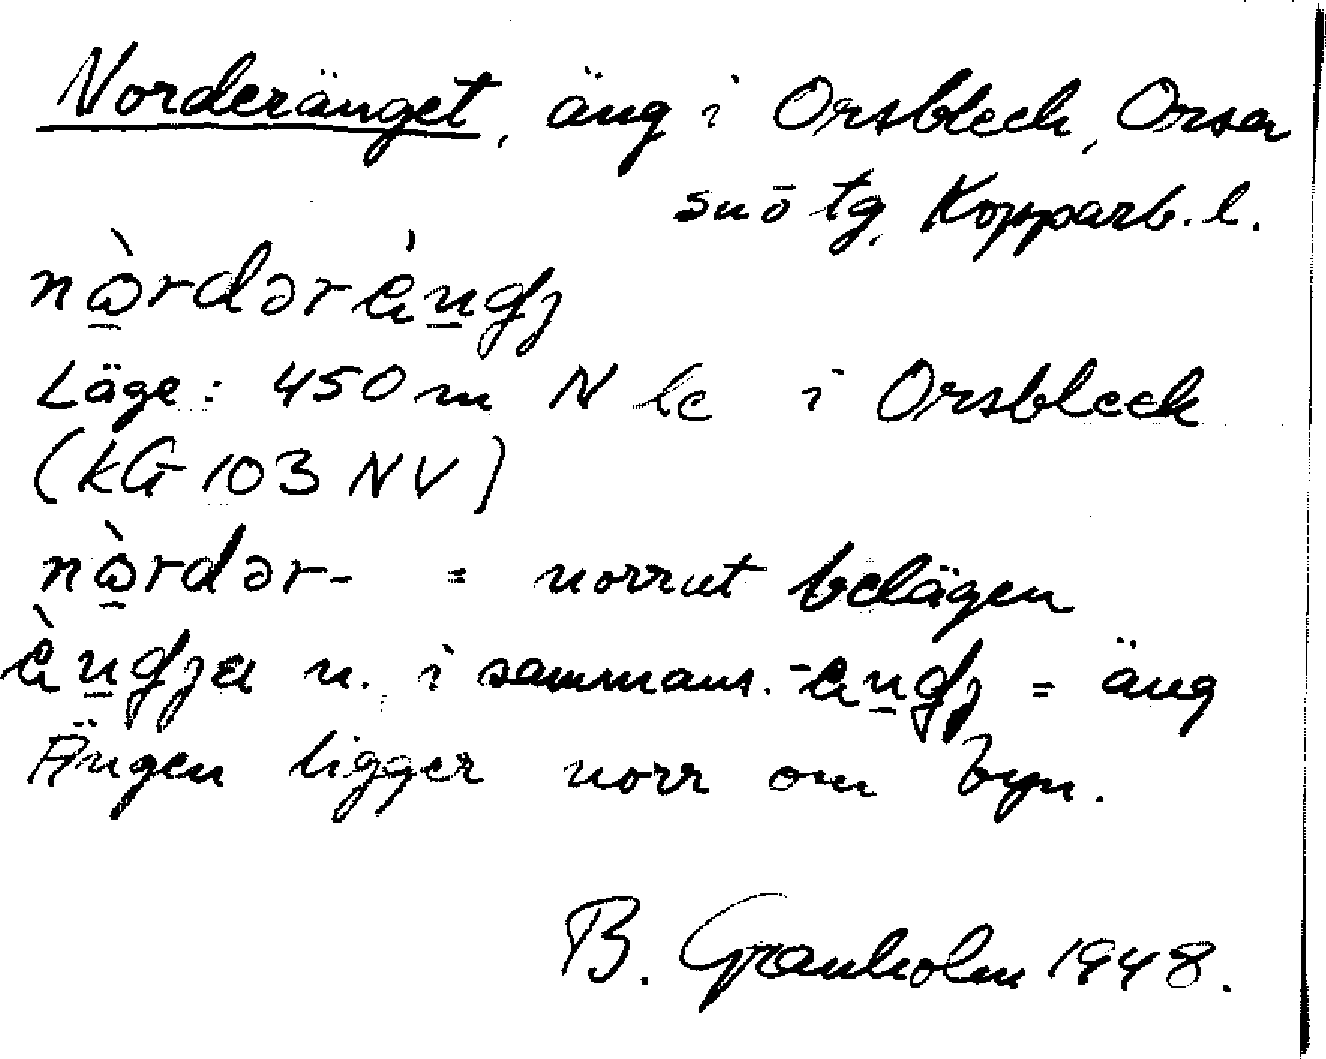 Norderänget, äng i Orsbleck, Orsa
snō tg, Kopparb. l.
nò̱rdərèṉgȷ
Läge: 450 m N lc i Orsbleck
(kG 103 NV)
nò̱rdər- = norrut belägen
èṉgȷa n. i sammans. -eṉgȷ = äng
Ängen ligger norr om byn.
B. Granholm 1948.